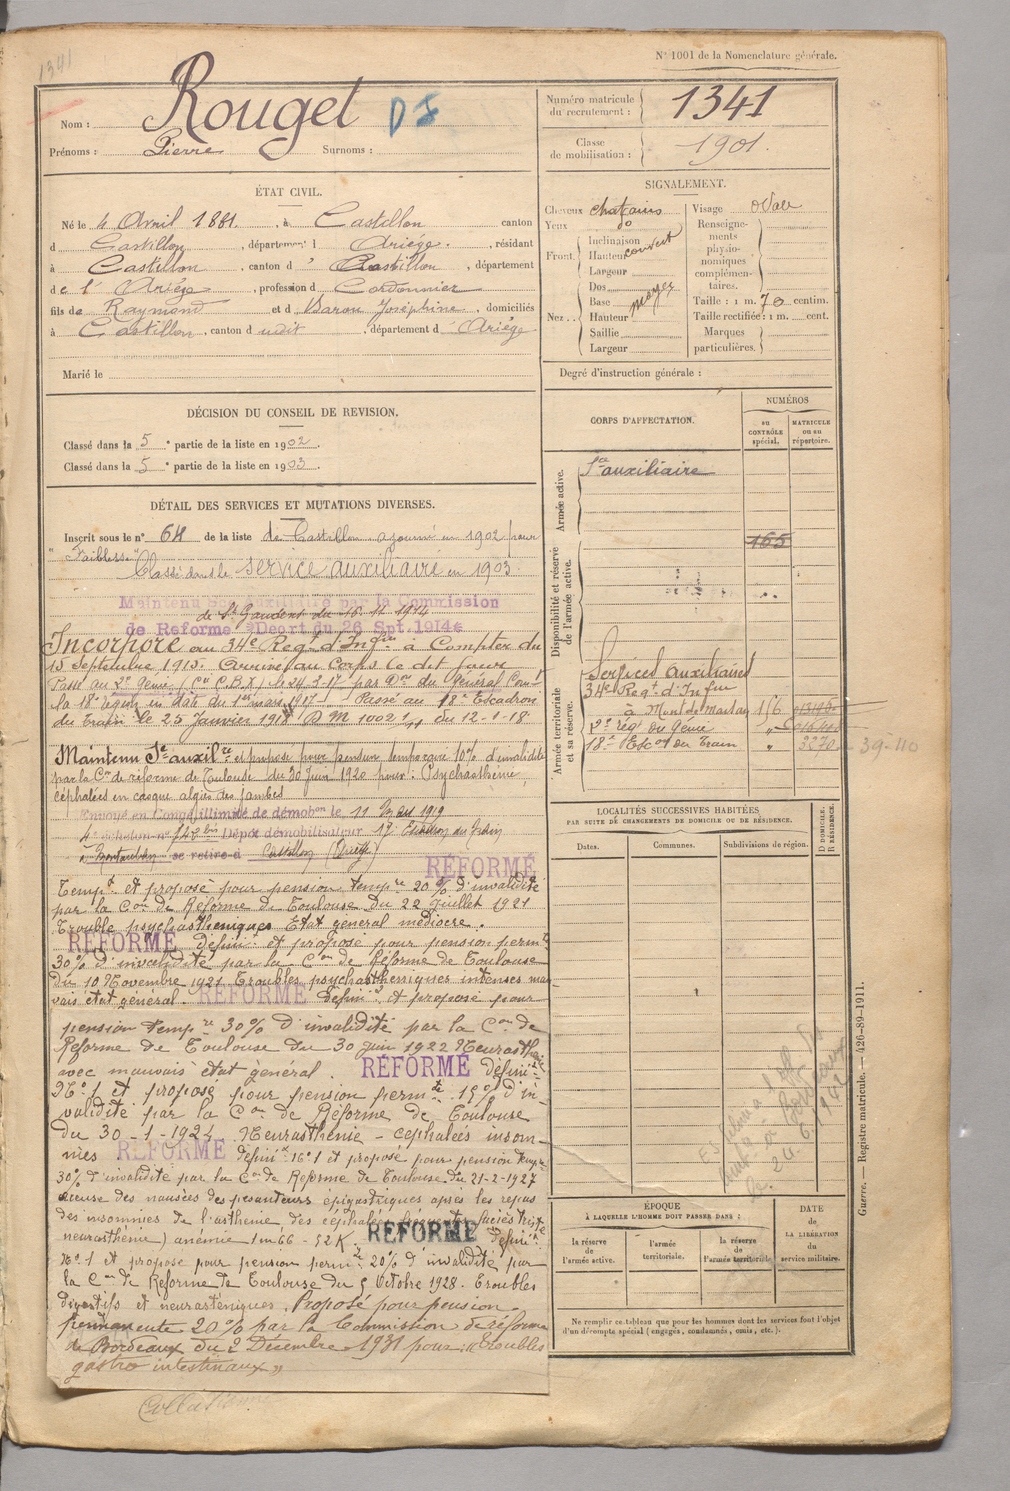 1341
N° 1001 de la Nomenclature générale.
Nom : Rouget DI
Prénoms : Pierre Surnoms :
Numéro matricule du recrutement : 1341
Classe de mobilisation : 1901.
ÉTAT CIVIL.
Né le 4 Avril 1881. , à Castillon canton
d Castillon , département d Ariège. , résidant
à Castillon , canton d Castillon , département
de l' Ariège , profession d Cordonnier
fils de Raymond et d Baron Joséphine , domiciliés
à Castillon , canton d udit , département d Ariège
Marié le
SIGNALEMENT.
Cheveux chatains
Yeux do
Front. Inclinaison
Hauteur couvert
Largeur
Nez .. Dos
Base moyen
Hauteur
Saillie
Largeur
Visage ovale
Renseignements physionomiques complémentaires.
Taille : 1 m. 70 centim.
Taille rectifiée : 1 m. cent.
Marques particulières.
Degré d'instruction générale :
DÉCISION DU CONSEIL DE REVISION.
Classé dans la 5e partie de la liste en 1902.
Classé dans la 5e partie de la liste en 1903.
DÉTAIL DES SERVICES ET MUTATIONS DIVERSES.
Inscrit sous le n° 64 de la liste de Castillon ajourné en 1902 pour
"Faiblesse"
Classé dans le service auxiliaire en 1903.
Maintenu Sce Auxiliaire par la Commission
de St Gaudens du 16.11.1914
de Réforme Décret du 26 Spt. 1914
Incorporé au 34e Regt d'Infrie à Compter du
15 septembre 1915. Arrivé au Corps le dit jour
Passé au 2e Génie (Cie C.B.X) le 24-3-17 par Don du Général Comt
la 18e région en date du 1er mars 1917 - Passé au 18e Escadron
du train le 25 Janvier 1918 D M 1002 1/11 du 12-1-18
Maintenu Sce auxilre et proposé pour pension temporaire 10% d'invalidité
par la Con de réforme de Toulouse du 30 juin 1920 pour: Psychasthénie,
céphalées en casque algies des jambes
Envoyé en Congé illimité de démobon le 11 Mars 1919
4e échelon n° 142 bis Dépôt démobilisateur 17e Escadron du Train
à Montauban se retire à Castillon (Ariège)
RÉFORMÉ
Tempt et proposé pour pension tempre 20% d'invalidité
par la Con de Réforme de Toulouse du 22 juillet 1921
Trouble psychastheniques Etat général médiocre.
RÉFORMÉ définit et proposé pour pension permte
30% d'invalidité par la Con de Réforme de Toulouse
du 10 Novembre 1921 Troubles psychastheniques intenses mau
vais état général. RÉFORMÉ définit et proposé pour
pension tempre 30% d'invalidité par la Con de
Réforme de Toulouse du 30 juin 1922 Neurasthénie
avec mauvais état général. RÉFORMÉ définit
N° 1 et proposé pour pension permte 15% d'in
validité par la Con de Réforme de Toulouse
du 30-1-1924 Neurasthénie - cephalées insom-
nies RÉFORMÉ définit N° 1 et proposé pour pension tempre
30% d'invalidité par la Con de Réforme de Toulouse du 21-2-1927
accuse des nausées des pesanteurs épigastriques après les repas
des insomnies de l'asthenie des céphalées fréquentes faciès triste
neurasthénie) anémie 1m66 - 52 K. RÉFORMÉ définit
N° 1 et proposé pour pension permte 20% d'invalidité par
la Con de Réforme de Toulouse du 5 Octobre 1928. Troubles
digestifs et neurasténiques. Proposé pour pension
permanente 20% par la Commission de réforme
de Bordeaux du 2 Décembre 1931 pour: "Troubles
gastro intestinaux"
Collationné
CORPS D'AFFECTATION.
NUMÉROS
au CONTRÔLE spécial.
MATRICULE ou au répertoire.
Armée active.
Sce auxiliaire
Disponibilité et réserve de l'armée active.
165
Armée territoriale et sa réserve.
Services Auxiliaires
34e Regt d'Infrie
à Mont de Marsan 156
2e rég du Génie "
18e Escon du Train " 3270 39-110
LOCALITÉS SUCCESSIVES HABITÉES
PAR SUITE DE CHANGEMENTS DE DOMICILE OU DE RÉSIDENCE.
Dates. Communes. Subdivisions de région. D DOMICILE. R RÉSIDENCE.
ÉPOQUE
À LAQUELLE L'HOMME DOIT PASSER DANS :
la réserve de l'armée active.
l'armée territoriale.
la réserve de l'armée territoriale
DATE de LA LIBÉRATION du service militaire.
Ne remplir ce tableau que pour les hommes dont les services font l'objet
d'un décompte spécial (engagés, condamnés, omis, etc.).
Guerre. — Registre matricule. — 426-89-1911.